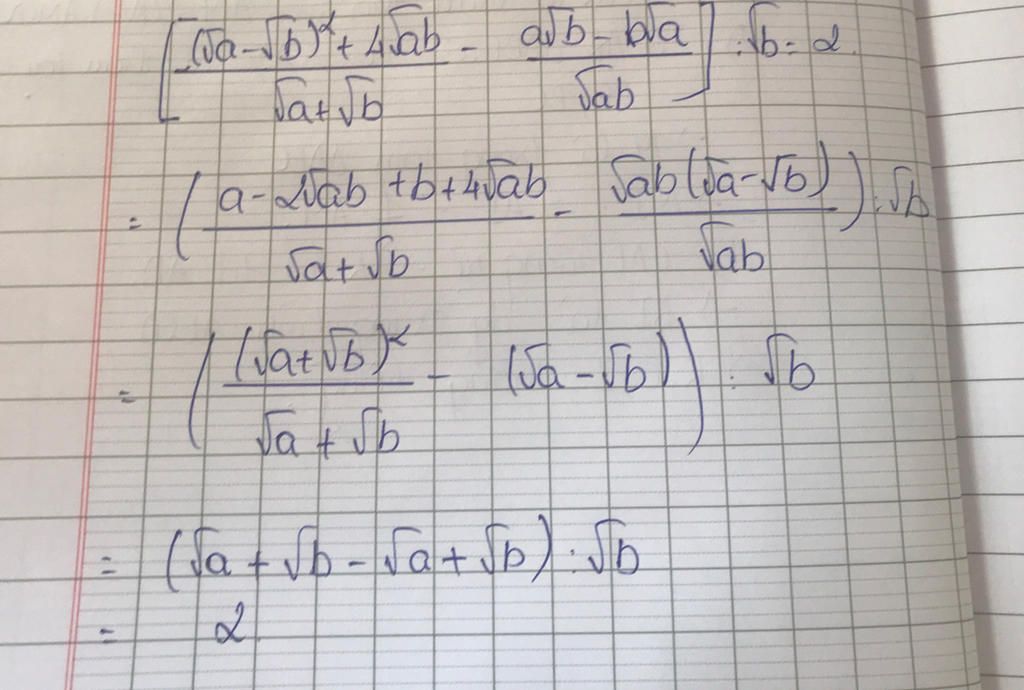 [((√a-√b)²+4√ab)/(√a+√b) - (a√b-b√a)/√ab] : √b = 2
= ((a-2√ab+b+4√ab)/(√a+√b) - √ab(√a-√b)/√ab) : √b
= ((√a+√b)²/(√a+√b) - (√a-√b)) : √b
= (√a+√b-√a+√b) : √b
= 2